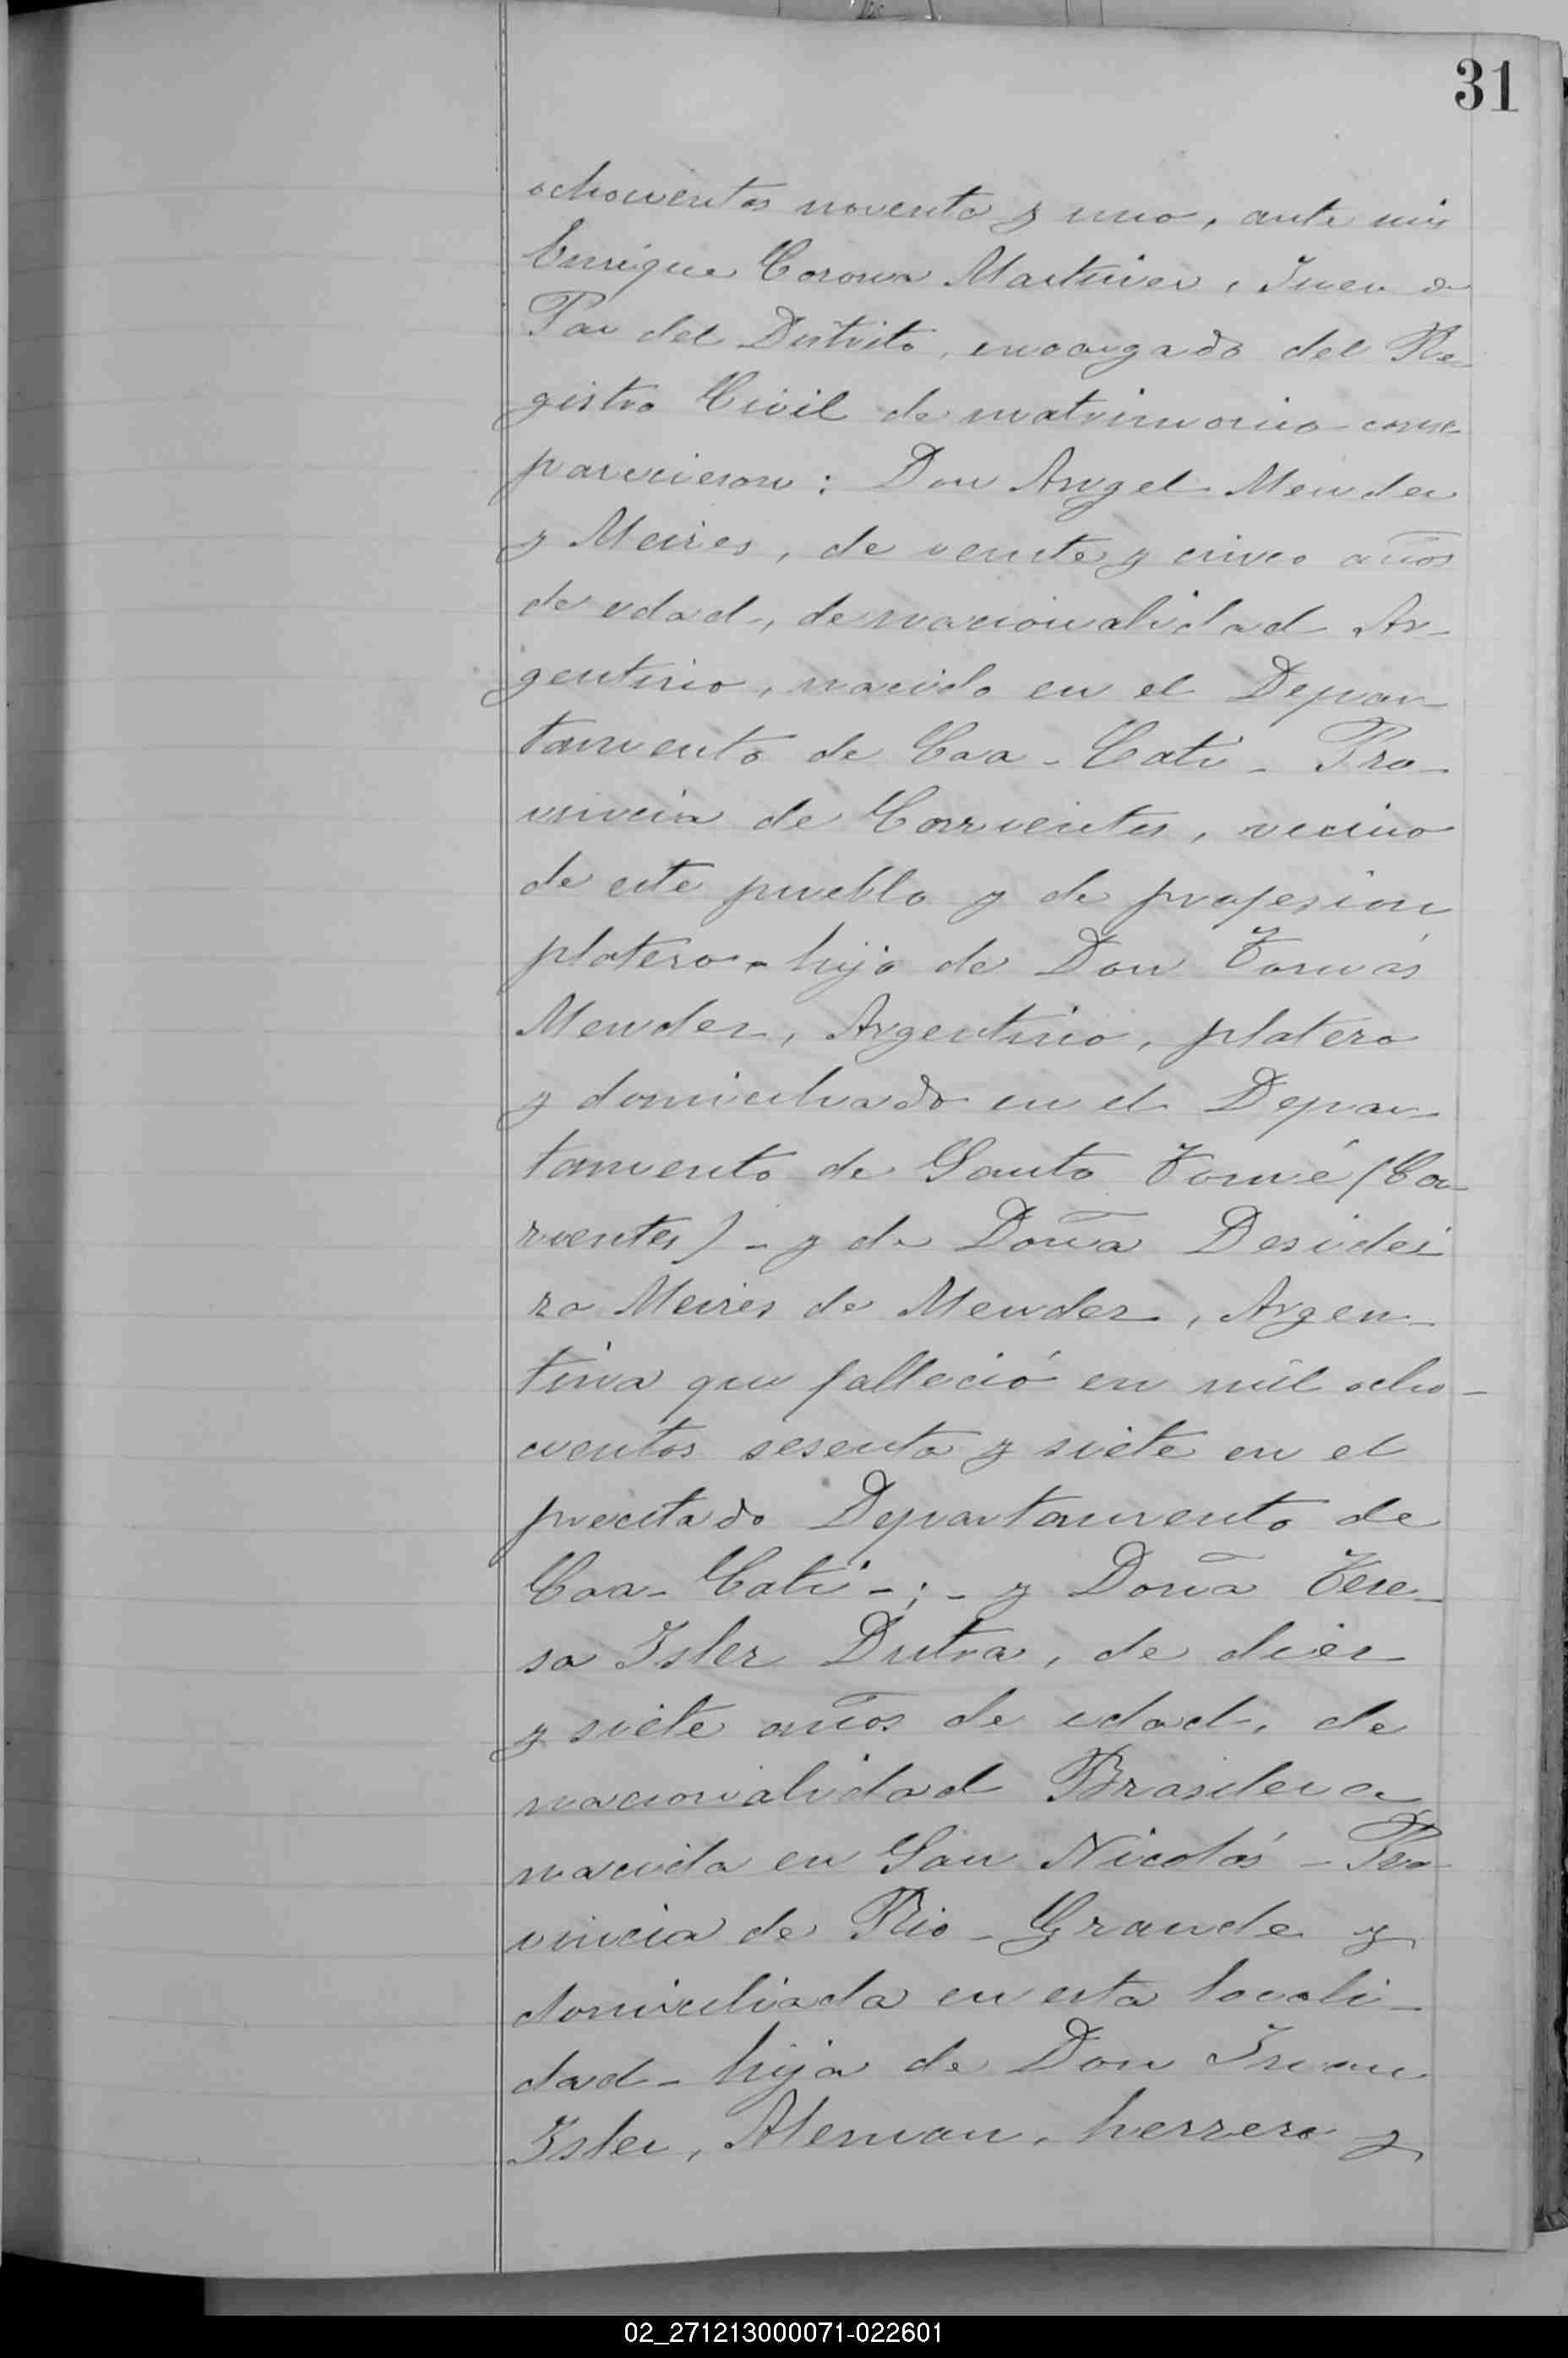 31
ochocientos noventa y uno, ante mi
Enrique Corona Martinez, Juez de
Paz del Distrito, encargado del Re-
gistro Civil de matrimonio com-
parecieron: Don Angel Mendez
y Meires, de veinte y cinco años
de edad, de nacionalidad Ar-
gentino, nacido en el Depar-
tamento de Caa-Cati - Pro-
vincia de Corrientes, vecino
de este pueblo y de profesion
platero - hijo de Don Tomás
Mendez, Argentino, platero
y domiciliado en el Depar-
tamento de Santo Tomé (Co-
rrientes) - y de Doña Deside-
ra Meires de Mendez, Argen-
tina que falleció en mil ocho-
cientos sesenta y siete en el
precitado Departamento de
Caa-Cati -;- y Doña Tere-
sa Isler Dutra, de diez
y siete años de edad, de
nacionalidad Brasilera
nacida en San Nicolás - Pro-
vincia de Rio-Grande y
domiciliada en esta locali-
dad - hija de Don Juan
Isler, Aleman, herrero y
02_271213000071-022601